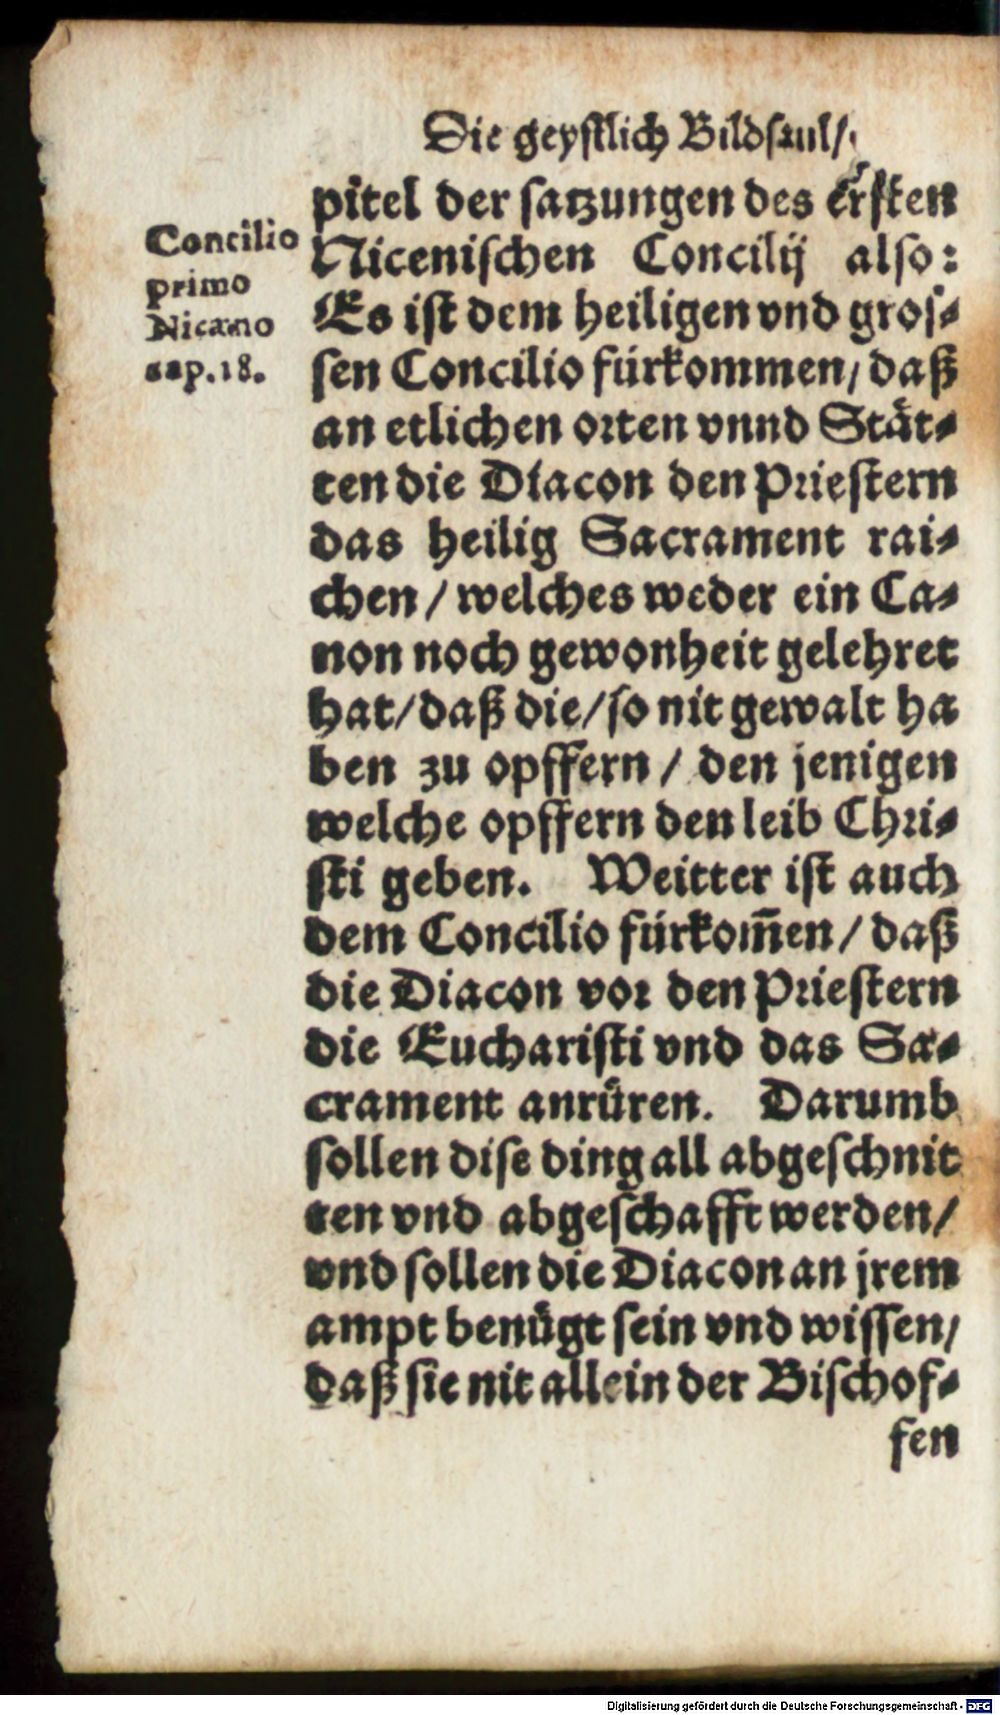 Die geystlich Bildsaul/
pitel der satzungen des ersten
Nicenischen Concilij also:
Es ist dem heiligen vnd gros⸗
sen Concilio fürkommen/ daß
an etlichen orten vnnd Stät⸗
ten die Diacon den Priestern
das heilig Sacrament rai⸗
chen / welches weder ein Ca⸗
non noch gewonheit gelehret
hat/ daß die/ so nit gewalt ha
ben zu opffern / den jenigen
welche opffern den leib Chri⸗
sti geben. Weitter ist auch
dem Concilio fürkom̅en / daß
die Diacon vor den Priestern
die Eucharisti vnd das Sa⸗
crament anrüren. Darumb
sollen dise ding all abgeschnit
ten vnd abgeschafft werden/
vnd sollen die Diacon an jrem
ampt benügt sein vnd wissen/
daß sie nit allein der Bischof⸗
fen
Concilio
primo
Nicæno
cap. 18.
Digitalisierung gefördert durch die Deutsche Forschungsgemeinschaft - DFG